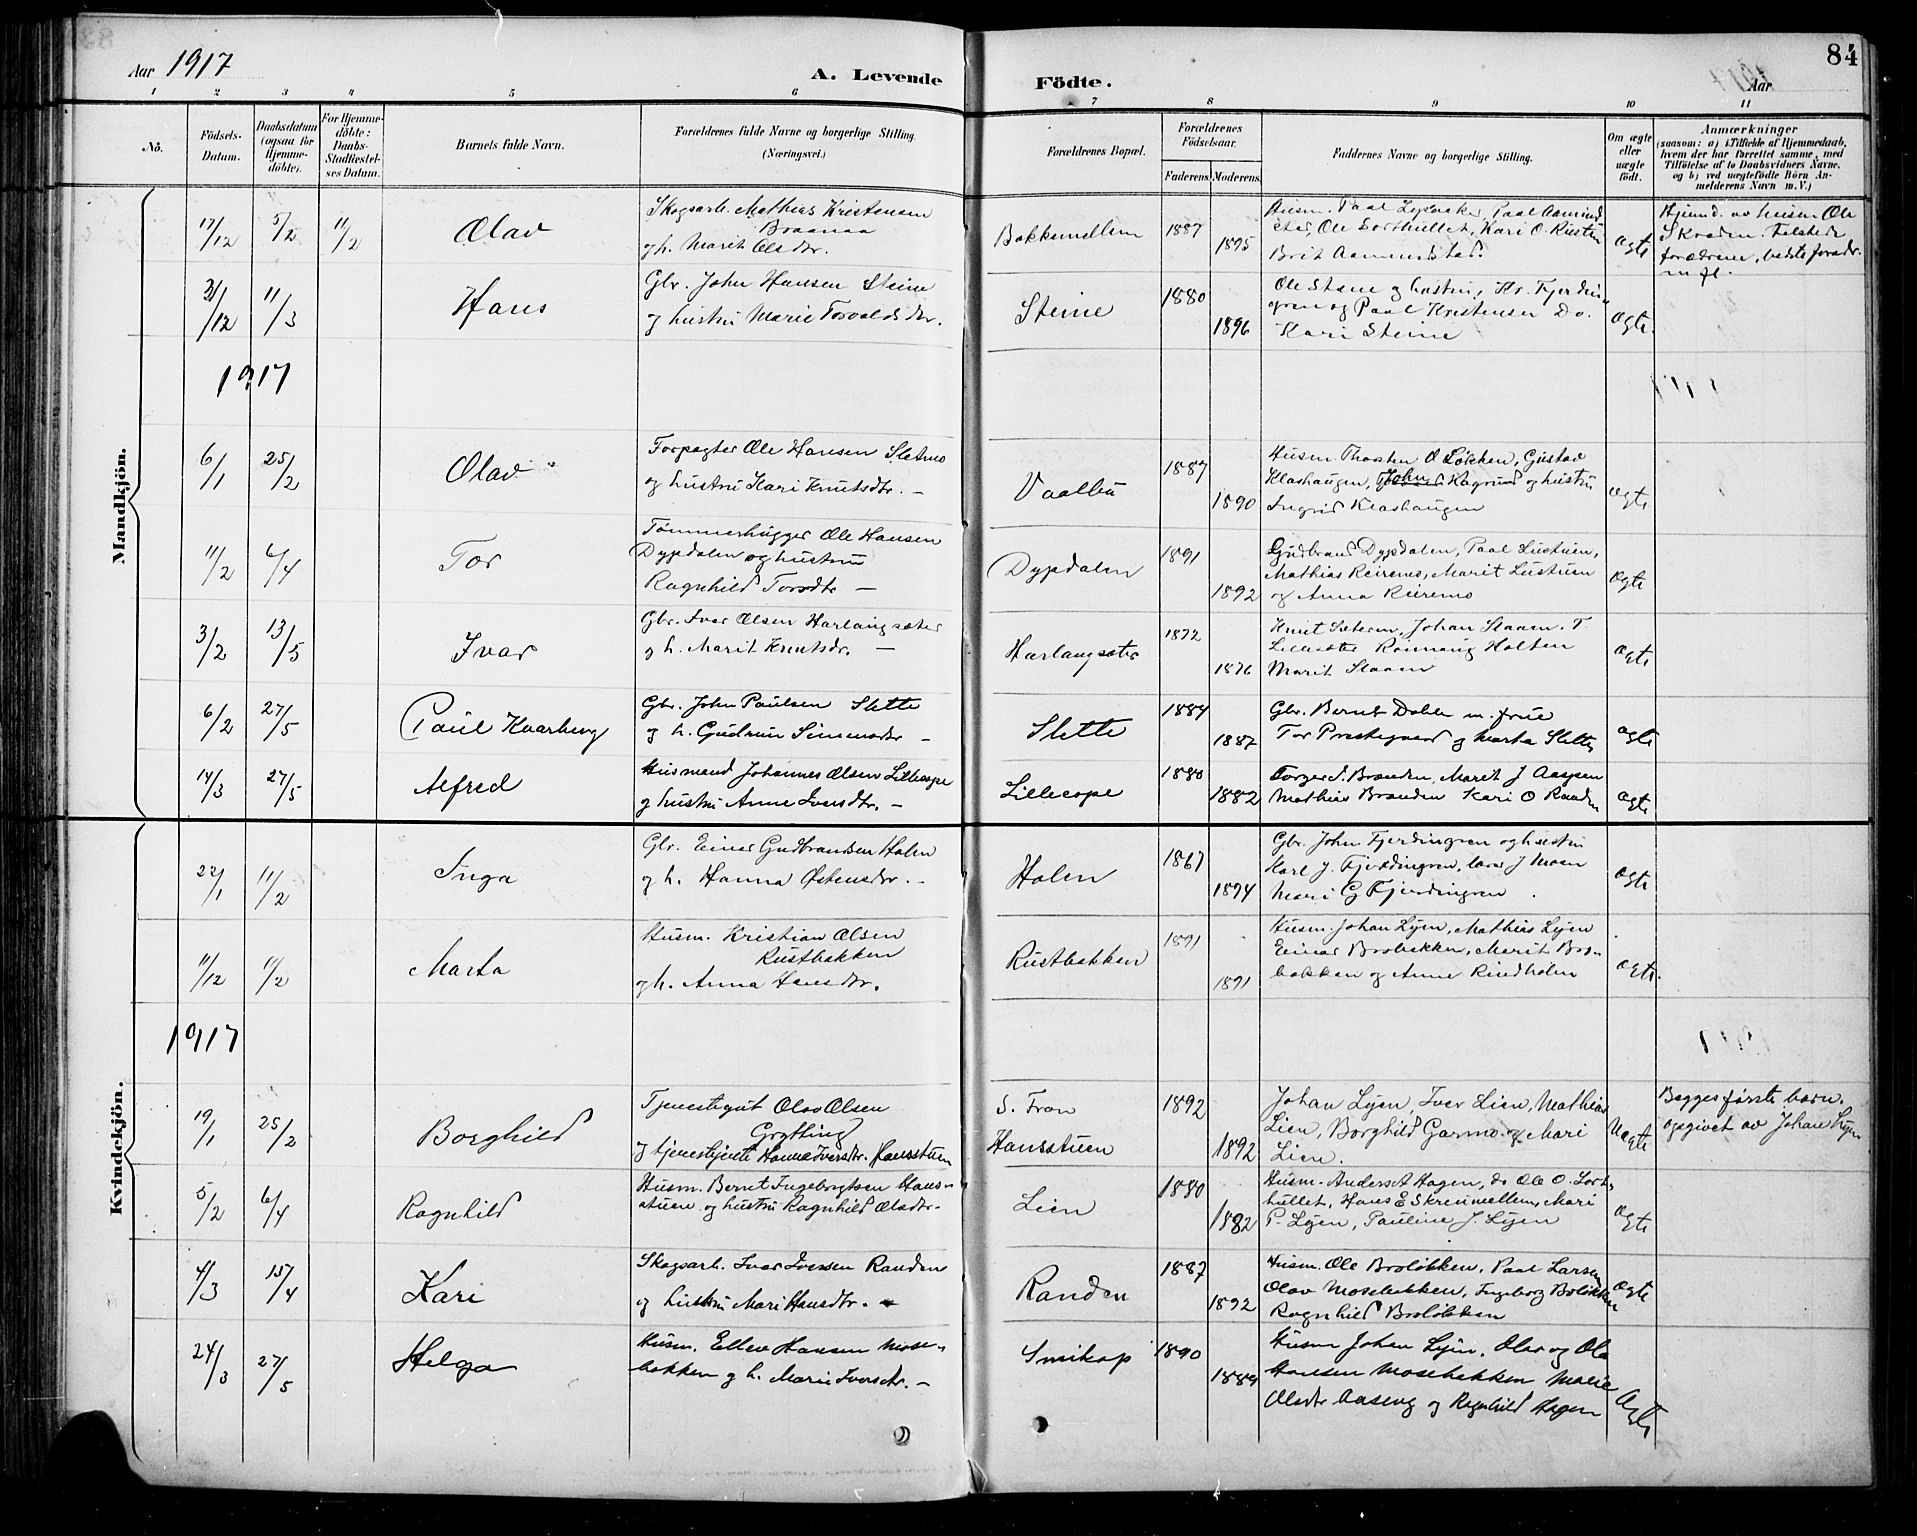 Aar 1917
A. Levende
Födte.
Aar
84
1 2 3 4 5 6 7 8 9 10 11
No.
Födsels-
Datum.
Daabsdatum
(ogsaa for
Hjemme-
döbte).
For Hjemme-
döbte:
Daabs-
Stadfæstel-
ses Datum.
Barnets fulde Navn.
Forældrenes fulde Navne og borgerlige Stilling.
(Næringsvei.)
Forældrenes Bopæl.
Forældrenes
Födselsaar.
Faderens. Moderens.
Faddernes Navne og borgerlige Stilling.
Om ægte
eller
uægte
födt.
Anmærkninger
(saasom: a) i Tilfælde af Hjemmedaab,
hvem der har forrettet samme, med
Tilföielse af to Daabsvidners Navne,
og b) ved uægtefödte Börn An-
melderens Navn m. V.)
Mandkjön.
17/12 5/2 11/2 Olav
Skogsarb. Mathias Kristensen
Braanaa
og h. Marit Olsdtr.
Bakkemellem 1887 1895
Husm. Paal Lysaaker, Paal Aamund
stad, Ole Sorthullet, Kari O.
Brit Aamundstad.
Ægte
Hjemd. av husm Ole
Skraden. Tilstede
forældrene, bedsteforældr.
m fl.
31/12 11/3 Hans
Gbr. John Hansen Steine
og hustru Marie Torvaldsdtr.
Steine 1880 1896
Ole Steine og hustru, Kr. Fjerdin
gren og Paal Kristensen Do.
Kari Steine
Ægte.
1917
6/1 25/2 Olav
Forpagter Ole Hansen Sletmo
og hustru Kari Knutsdtr. —
Vaalbu 1887 1890
Husm. Thorsten O Løkken, Gustav
Klashaugen, John Kagrud og hustru
Ingrid Klashaugen
Ægte
11/2 6/4 Tor
Tømmerhugger Ole Hansen
Dypdalen og hustru
Ragnhild Torsdtr —
Dypdalen 1891 1892
Gudbrand Dypdalen, Paal Lustuen,
Mathias Reiremo, Marit Lustuen
og Anna Reiremo
Ægte
3/2 13/5 Ivar
Gbr. Iver Olsen Harlangsæter
og h. Marit Knutsdr. —
Harlangsæter 1872 1876
Knut Sæterm, Johan Slaaen, T.
Lillesæte Rønnaug Holten
Marit Slaaen
Ægte
6/2 27/5 Paul Kvarberg
Gbr. John Paulsen Slette
og h. Gudrun Simensdtr —
Slette 1884 1887
Gbr. Bernt Dahle m. frue
Tor Prestegaard og Marta Slette
Ægte
14/3 27/5 Alfred
Husmand Johannes Olsen Lilleespe
og hustru Anne Iversdtr. —
Lilleespe 1880 1882
Torger S. Brænden, Marit J Aaspen
Mathias Brænden Kari O Raaden
Ægte
Kvindekjön.
22/1 11/2 Inga
Gbr. Einar Gudbrandsen Holen
og h. Hanna Østensdtr. —
Holen 1867 1894
Gbr. John Fjerdingren og hustru
Karl J. Fjerdingren, Lars J Moen
Mari G Fjerdingren
Ægte
11/12 11/2 Marta
Husm. Kristian Olsen
Rustbakken
og h. Anna Hansdtr.
Rustbakken 1891 1891
Husm. Johan Lyen, Mathias Lyen
Einar Brobakken, Marit Bro-
bakken og Anne Rindholen
Ægte.
1917
19/1 25/2 Borghild
Tjenestegut Olav Olsen
Grytting
og tjenestejente Hanna Iversdtr. Hansstuen
S. Fron
Hansstuen 1892 1892
Johan Lyen, Iver Lien, Mathias
Lien, Borghild Garmo og Mari
Lien.
Uægte
Begges første barn.
opgivet av Johan Lyen
5/2 6/4 Ragnhild
Husm. Bernt Ingebrigtsen Hans-
stuen og hustru Ragnhild Olsdtr.
Lien 1880 1882
Husm. Anders A Hagen, do Ole O. Sort-
hullet, Hans E Skreumellem, Mari
P. Lyen, Pauline J. Lyen
Ægte
4/3 15/4 Kari
Skogsarb. Ivar Iversen Randen
og hustru Mari Hansdtr. —
Randen 1887 1892
Husm. Ole Broløkken, Paal Larsen
Olav Mosebakken, Ingeborg Broløkken
Ragnhild Broløkken
Ægte
24/3 27/5 Helga
Husm. Ellev Hansen Mose-
bakken og h. Marie Iversdtr. —
Smikop 1890 1889
Husm Johan Lyen, Olav og Ola
Hansen Mosebakken Marie
Olsdtr Aaseng og Ragnhild Hagen
Ægte